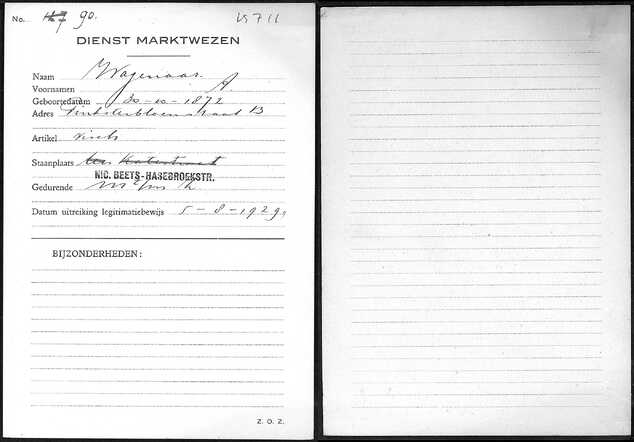 No. 47 90. 
DIENST MARKTWEZEN
Naam Wagenaar.
Voornamen A
Geboortedatum 30-10-1872
Adres B
Artikel visch
Staanplaats
NIC. BEETS-HASEBROEKSTR.
Gedurende
Datum uitreiking legitimatiebewijs 5-8-1929.
BIJZONDERHEDEN:
Z. O. Z.